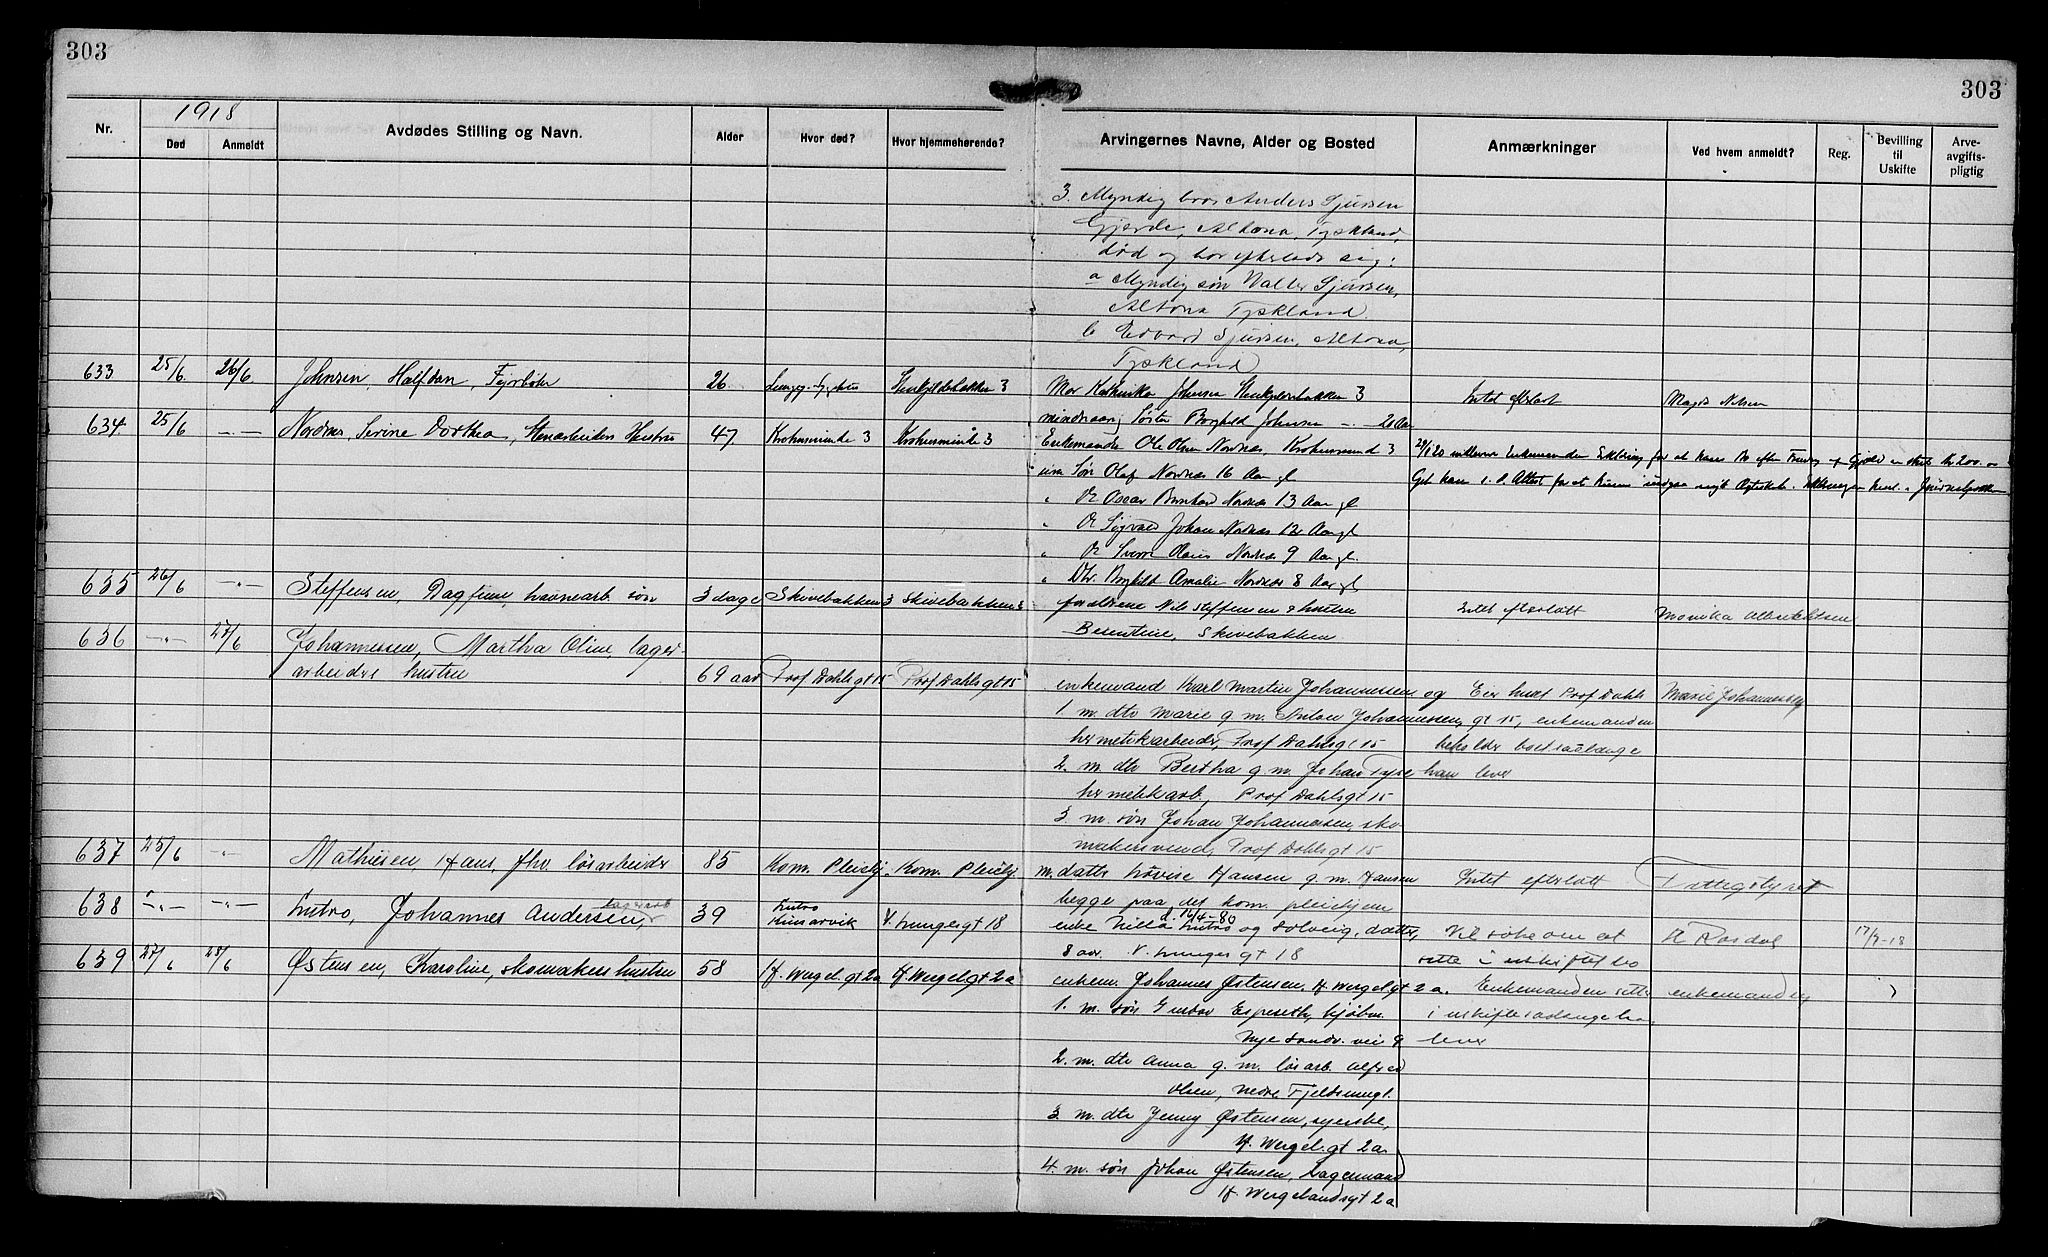 303
303
1918
Nr.
Død
Anmeldt
Avdødes Stilling og Navn.
Alder
Hvor død?
Hvor hjemmehørende?
Arvingernes Navne, Alder og Bosted
Anmærkninger
Ved hvem anmeldt?
Reg.
Bevilling til Uskifte
Arve-avgifts-pligtig
3. Myndig bror Anders Sjursen
Gjerde, Altona, Tyskland,
død og har efterladt sig:
a Myndig søn Walter Sjursen,
Altona Tyskland
b Edvard Sjursen, Altona,
Tyskland
633 25/6 26/6 Johnsen, Halfdan, Fyrbøter 26 Steinkjeldebakken 3 Mor Johnsen Steinkjeldebakken 3 Intet efterlatt Magda Nilsen
mindreaarig Søster Borghild Johnsen
634 25/6 -"- Nordnæs, Serine Dorthea, Stenarbeiders Hustru 47 Krohnsminde 3 Krohnsminde 3 Enkemanden Ole Olsen Nordnæs, Krohnsminde 3
um Søn Olaf Nordnæs 16 Aar gl
" Do Oscar Bernhard Nordnæs 13 Aar gl
" Do Sigvald Johan Nordnæs 12 Aar gl
" Do Sverre Olaus Nordnæs 9 Aar gl.
" Dtr. Borghild Amalie Nordnæs 8 Aar gl
635 26/6 -"- Steffensen, Dagfinn, havnearb. søn 3 dage Skivebakken 3 Skivebakken 3 forældrene Nils Steffensen & hustru Intet efterlatt Monika Albrektsen
Berentine, Skivebakken
636 -"- 27/6 Johannessen, Martha Oline, lager-
arbeiders hustru 69 aar Prof Dahlsgt 15 Prof Dahlsgt 15 enkemand Karl Martin Johannessen og Eier huset Prof Dahls Marie Johannessen
1 m. dtr Marie g. m. Johannessen, gt 15, enkemanden
hermetikarbeider, Prof Dahlsgt 15 beholder boet saalænge
2. m. dtr Bertha g m. Johan han lever
hermetikkarb., Prof Dahlsgt 15
3 m. søn Johan Johannessen, sko
makersvend, Prof Dahlsgt 15
637 25/6 -"- Mathiesen, Hans, fhv. løsarbeider 85 Kom. Pleiehj. Kom. Pleiehj m. datter Lovise Hansen g. m. Hansen Intet efterlatt Fattigstyret
begge paa det kom. pleiehjem
638 -"- -"- Lutro, Johannes Andersen, lagerarb 39 Lutro Kinsarvik N. Lungegt 18 enke Lutro og Solveig, datter, Vil søke om at 17/7-18
8 aar. N. Lungegt 18 sitte i uskiftet bo
639 27/6 28/6 Østensen, Karoline, skomakers hustru 58 H. Wergel.gt 2a H. Wergel.gt 2a enkem. Johannes Østensen, H. Wergel.gt 2 a. Enkemanden sitter enkemanden
1. m. søn Gustav Espeseth, i uskifte saalænge han
Nye Sandv. vei 9 lever
2. m. dtr Anna g. m. løsarb. Alfred
Olsen, Nedre Fjeldsmugt.
3 m. dtr Jenny Østensen, syerske,
H. Wergel.gt 2a
4. m. søn Johan Østensen, lagermand
H. Wergelandsgt 2a